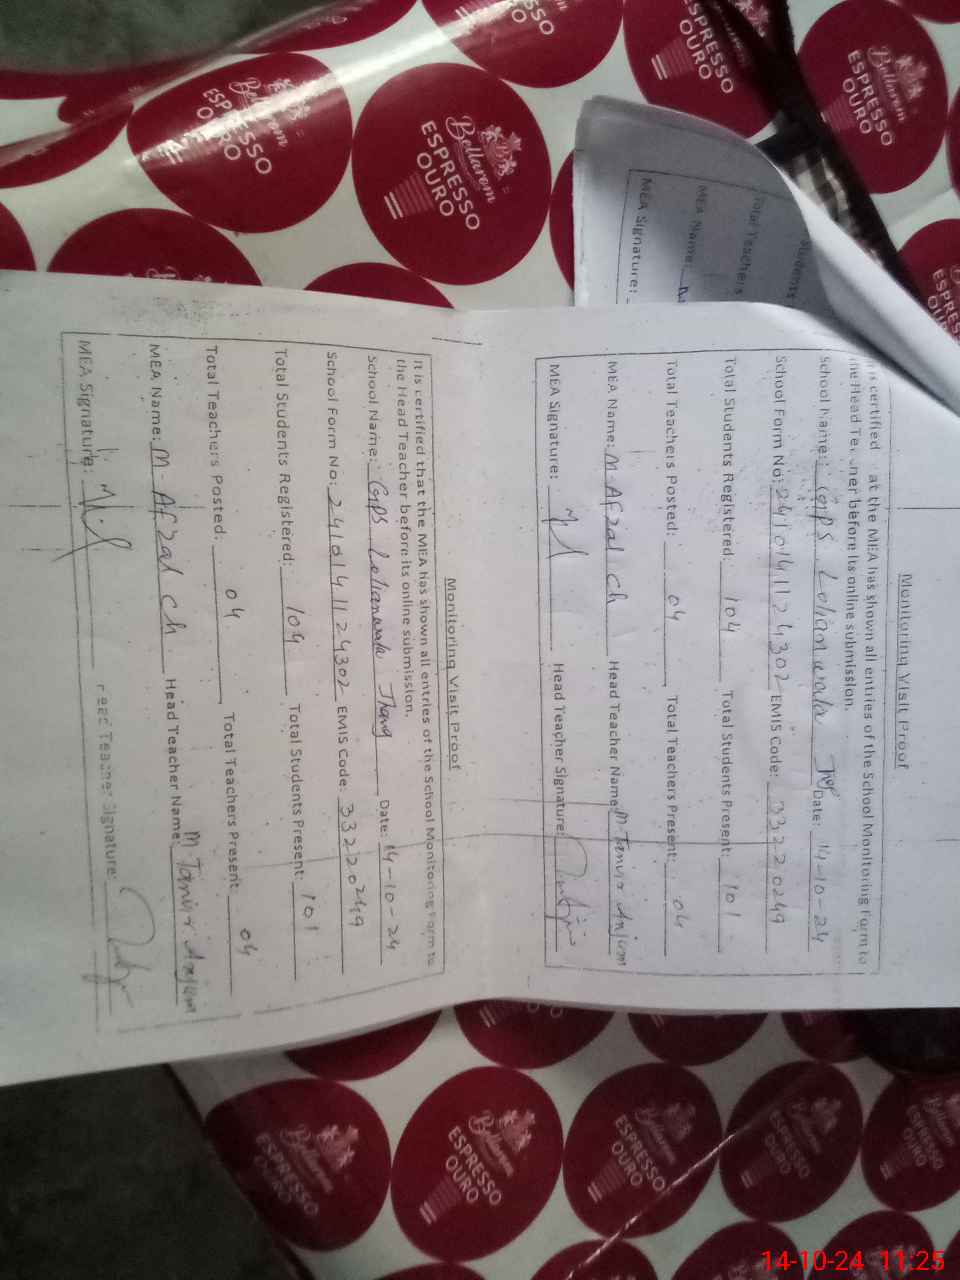 Monitoring Visit Proof
certified at the MEA has shown all entries of the School Monitoring Form to
the Head before its online submission.
School Name: GPS Lolianwala Date: 14-10-24
School Form No: 2410141124302 EMIS Code: 33220249
Total Students Registered: 104 Total Students Present: 101
Total Teachers Posted: 04 Total Teachers Present: 04
MEA Name: M. Afzal Ch Head Teacher Name: M Tanvir Anjum
MEA Signature: Head Teacher Signature:
Monitoring Visit Proof
It is certified that the MEA has shown all entries of the School Monitoring Form to
the Head Teacher before its online submission.
School Name: GPS Lolianwala Jhang Date: 14-10-24
School Form No: 2410141124302 EMIS Code: 33220249
Total Students Registered: 104 Total Students Present: 101
Total Teachers Posted: 04 Total Teachers Present 04
MEA Name: M. Afzal Ch Head Teacher Name: M Tanvir Anjum
MEA Signature: Head Teacher Signature:
Students
Total Teachers
MEA Name:
MEA Signature:
Bellarom
ESPRESSO
OURO
Bellarom
ESPRESSO
OURO
ESPRESSO
OURO
Bellarom
ESPRESSO
OURO
Bellarom
ESPRESSO
OURO
Bellarom
ESPRESSO
OURO
Bellarom
ESPRESSO
OURO
14-10-24 11:25